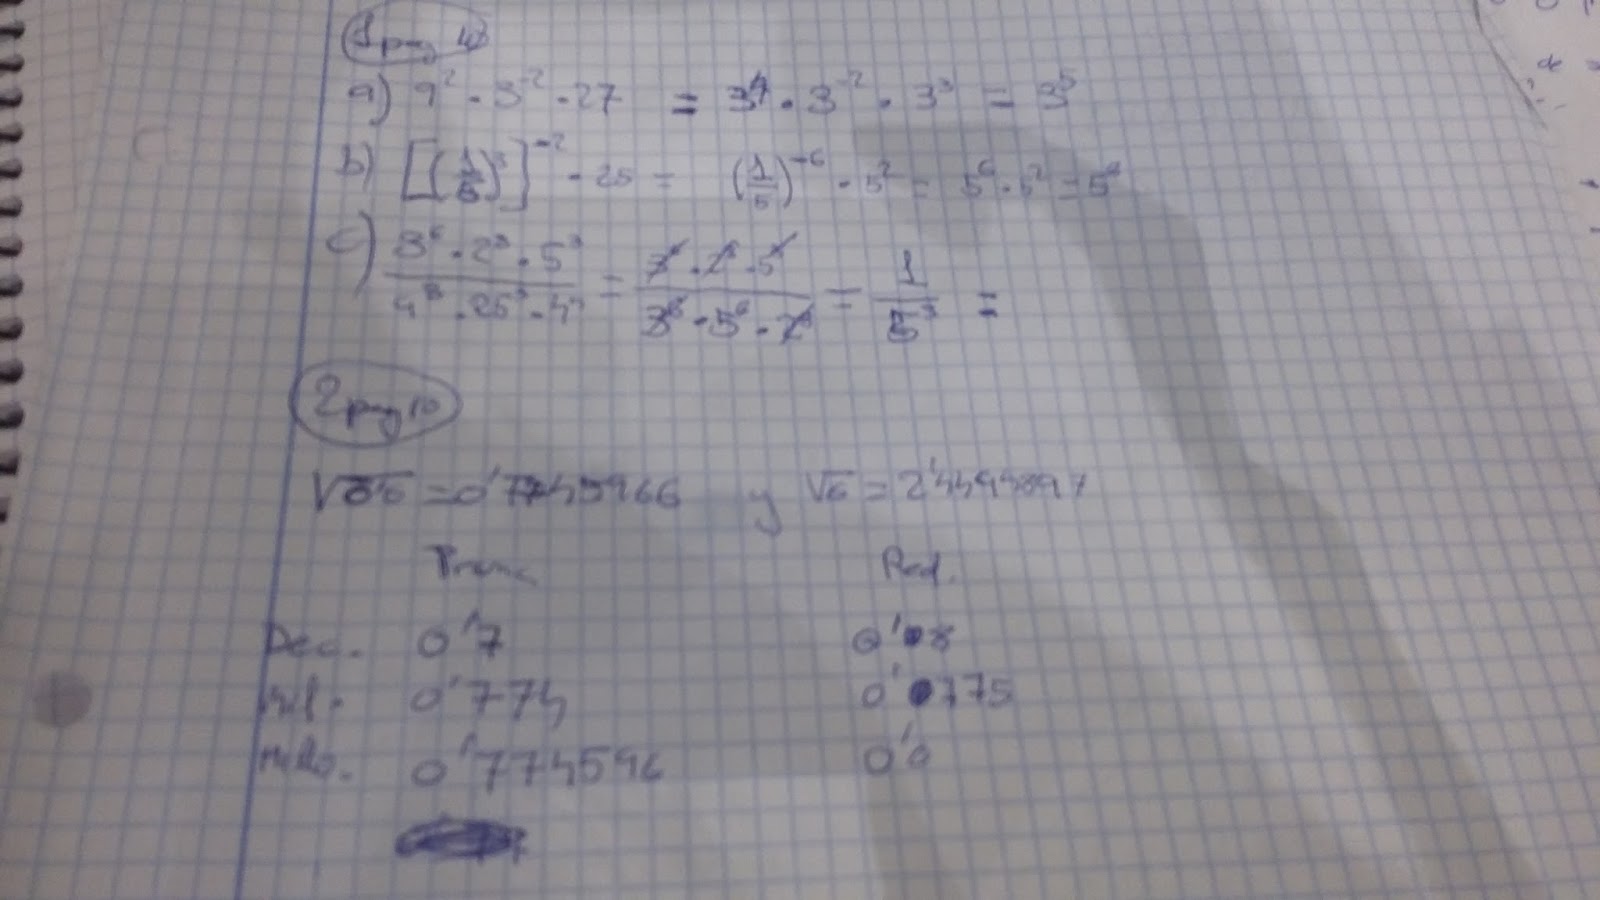 1 pag 10
a) 9² · 3⁻² · 27 = 3⁴ · 3⁻² · 3³ = 3⁵
b) [(1/5)³]⁻² · 25 = (1/5)⁻⁶ · 5² = 5⁶ · 5² = 5⁸
c) 3⁶ · 2³ · 5³ / 9³ · 25³ · 4 = 3⁶ · 2³ · 5³ / 3⁶ · 5⁶ · 2 = 1 / 5³ =
2 pag 10
√0'6 = 0'7745966 y √6 = 2'4494897
Trunc Red.
Dec. 0'7 0'8
Mil. 0'774 0'775
Millo. 0'774596 0'0